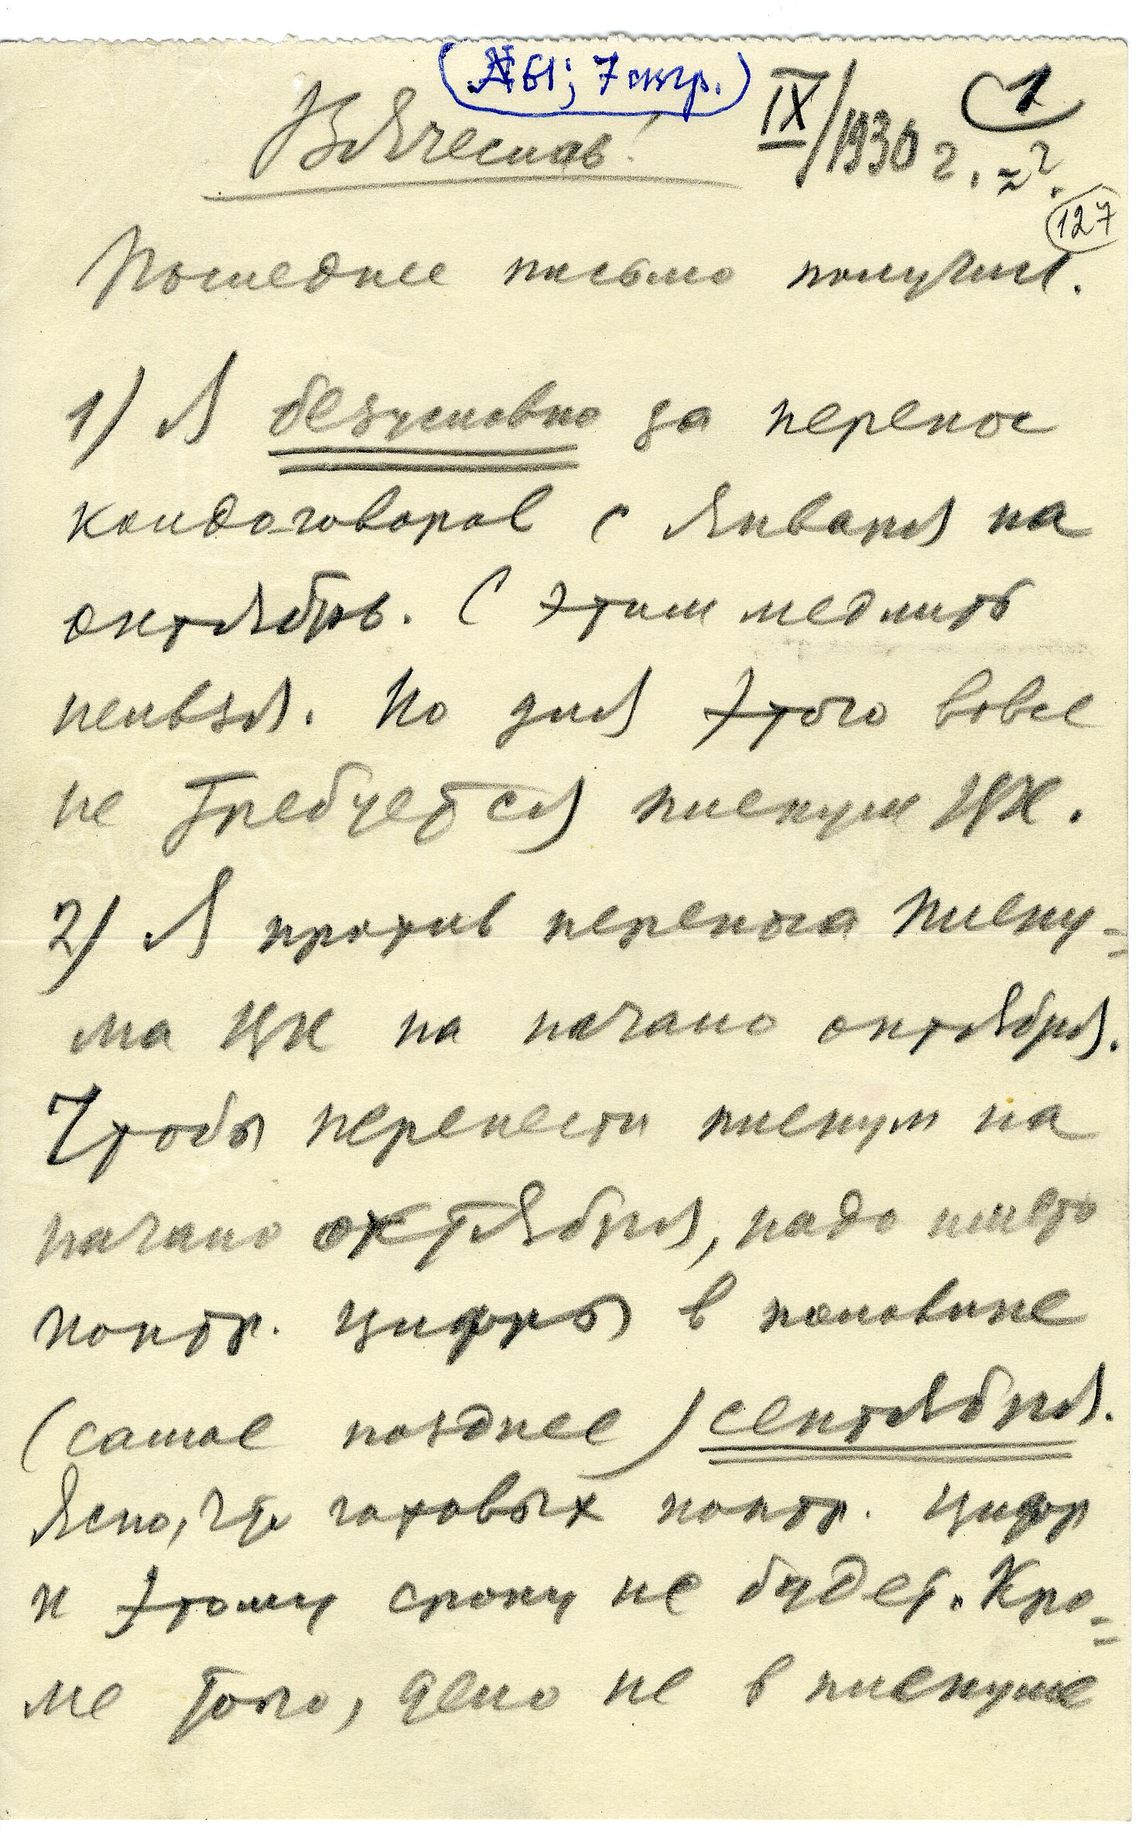 (№ 61; 7 стр.)
IX/1930 г. ≈?
1
127
Вячеслав!
Последнее письмо получил.
1) Я безусловно за перенос
колдоговоров с января на
октябрь. С этим медлить
нельзя. Но для этого вовсе
не требуется пленум ЦК.
2) Я против переноса плену=
ма ЦК на начало октября.
Чтобы перенести пленум на
начало октября, надо иметь
контр. цифры в половине
(самое позднее) сентября.
Ясно, что готовых контр. цифр
к этому сроку не будет. Кро=
ме того, дело не в пленуме